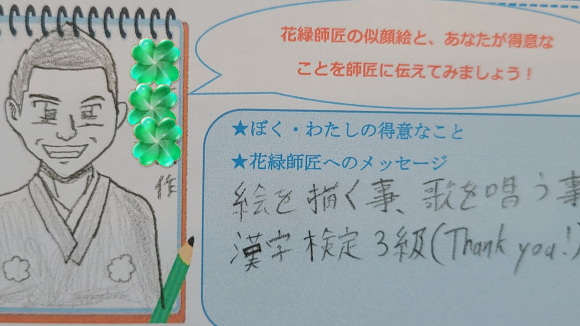 花緑師匠の似顔絵と、あなたが得意な
ことを師匠に伝えてみましょう！
★ぼく・わたしの得意なこと
★花緑師匠へのメッセージ
作
絵を描く事、歌を唱う事
漢字検定3級(Thank you!)